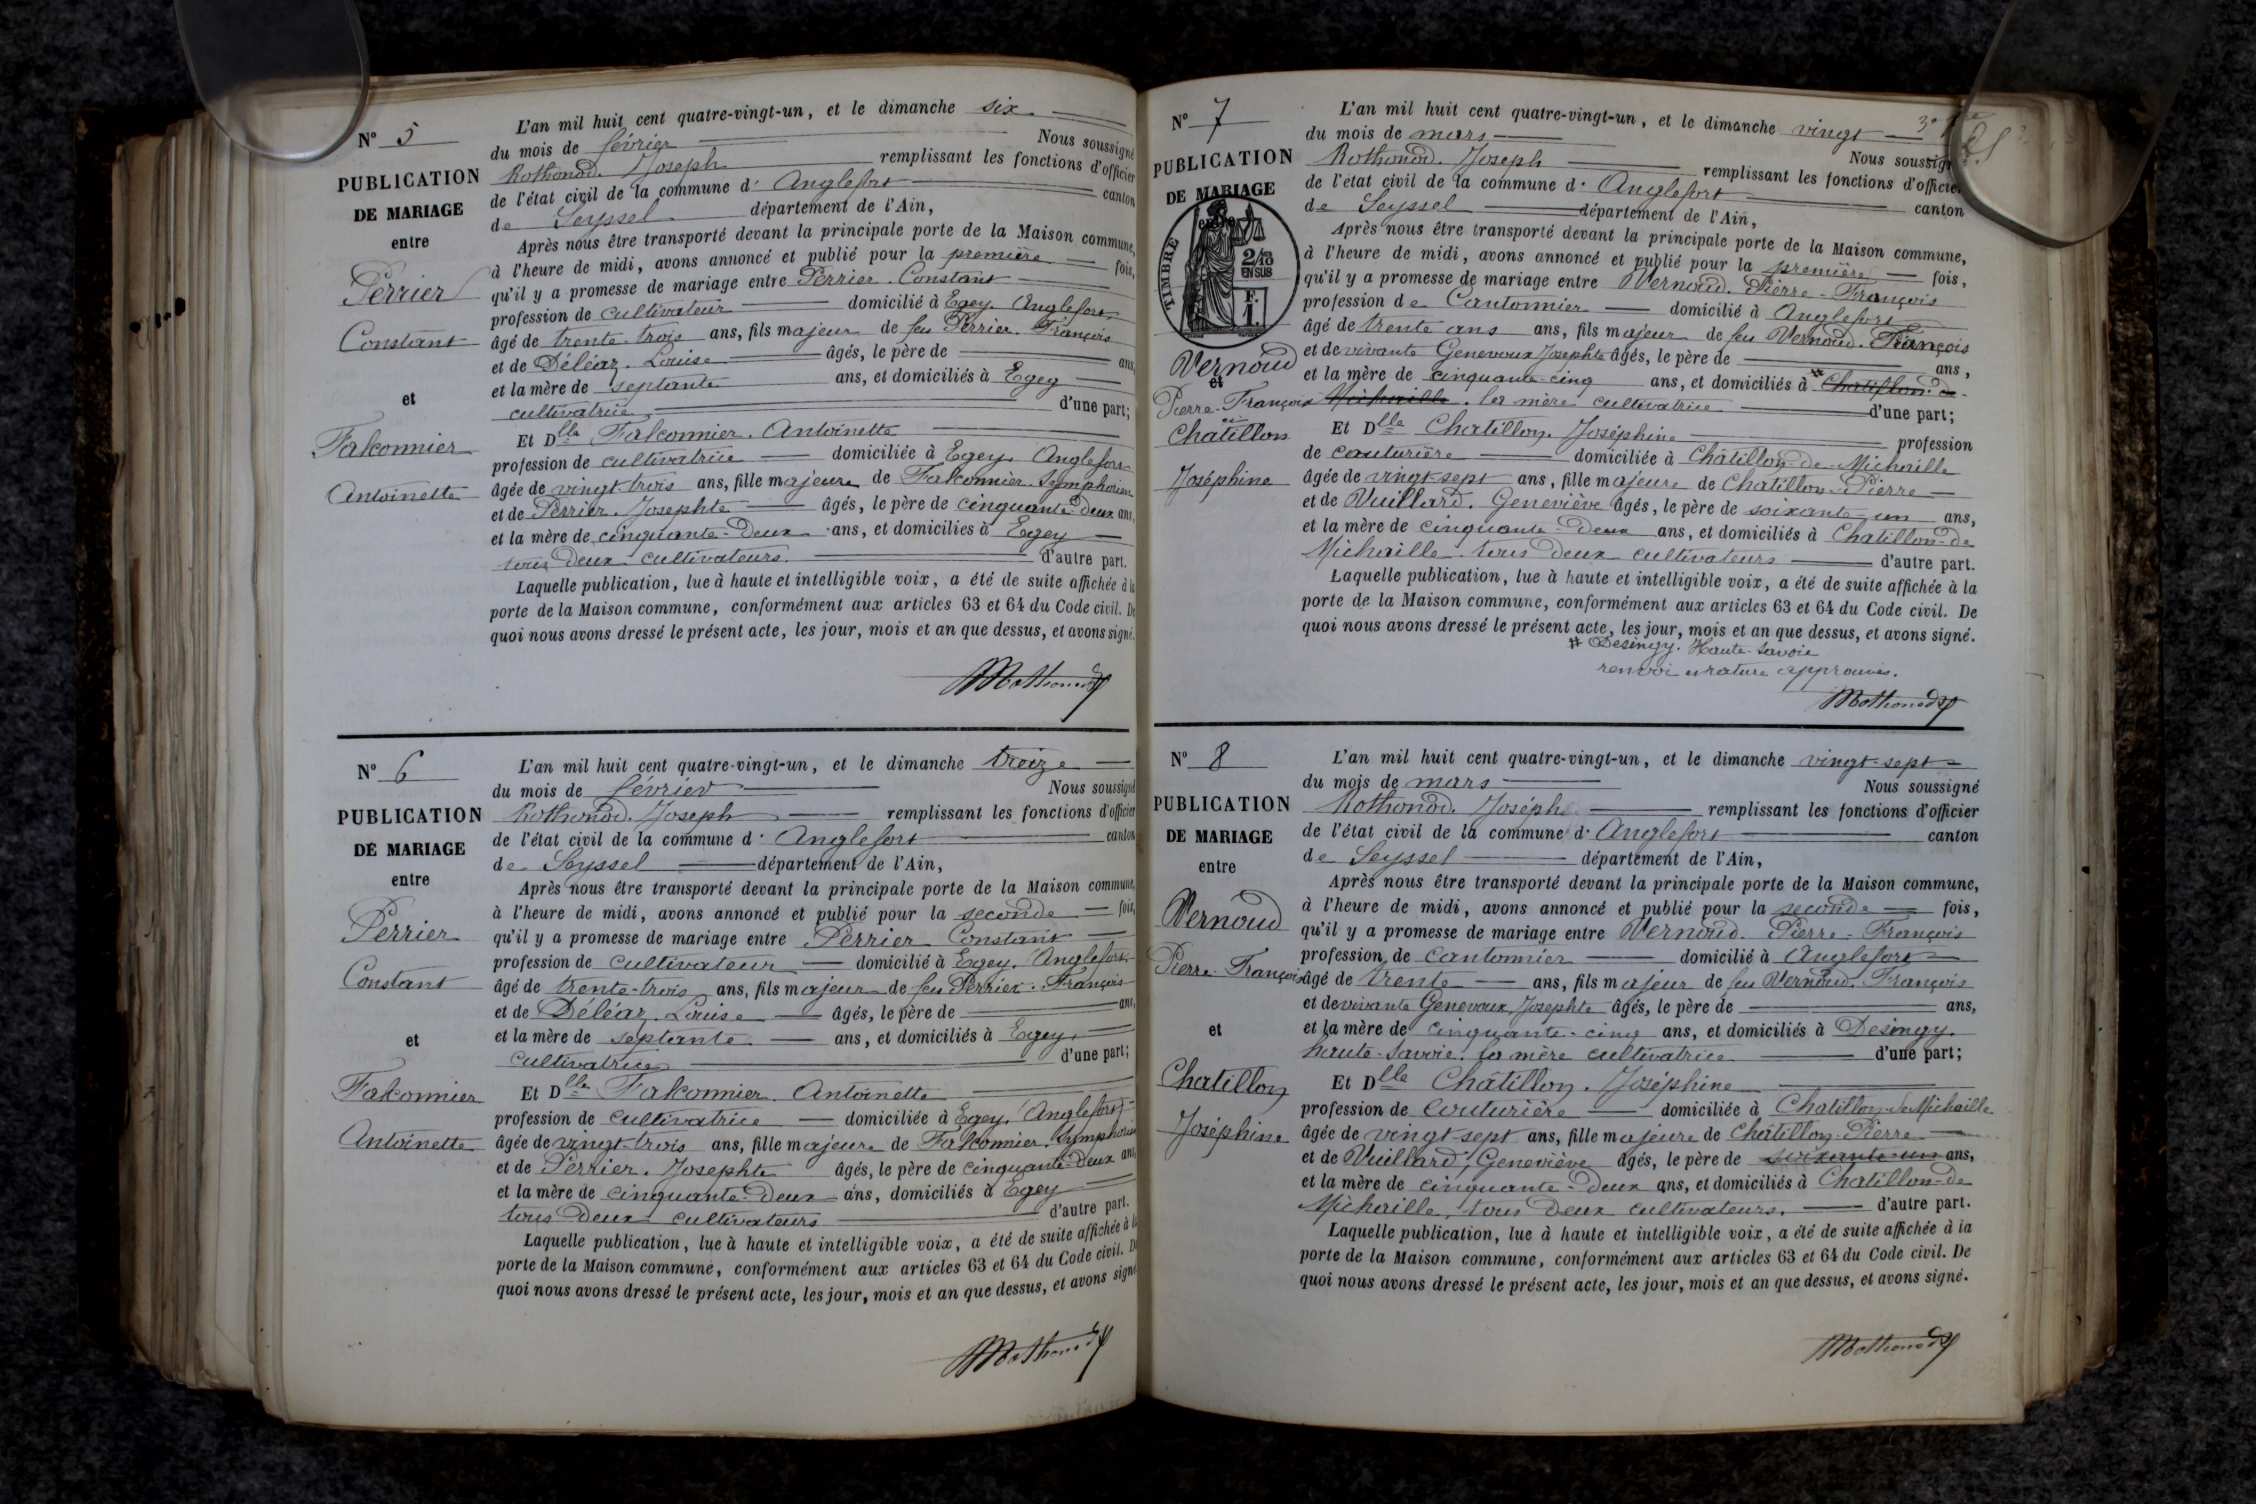 N° 5
PUBLICATION
DE MARIAGE
entre
Perrier
Constant
et
Falconnier
Antoinette
L'an mil huit cent quatre-vingt-un, et le dimanche six
du mois de février Nous soussigné
Rothonod. Joseph remplissant les fonctions d'officier
de l'état civil de la commune d' Anglefort canton
de Seyssel département de l'Ain,
Après nous être transporté devant la principale porte de la Maison commune,
à l'heure de midi, avons annoncé et publié pour la première fois,
qu'il y a promesse de mariage entre Perrier. Constant
profession de cultivateur domicilié à Egey. Anglefort
âgé de trente-trois ans, fils majeur de feu Perrier. François
et de Déléaz. Louise âgés, le père de ans,
et la mère de septante ans, et domiciliés à Egey
cultivatrice d'une part;
Et Dlle Falconnier. Antoinette
profession de cultivatrice domiciliée à Egey. Anglefort
âgée de vingt-trois ans, fille majeure de Falconnier. Symphorien
et de Perrier. Josephte âgés, le père de cinquante-deux ans,
et la mère de cinquante-deux ans, et domiciliés à Egey
tous deux cultivateurs. d'autre part.
Laquelle publication, lue à haute et intelligible voix, a été de suite affichée à la
porte de la Maison commune, conformément aux articles 63 et 64 du Code civil. De
quoi nous avons dressé le présent acte, les jour, mois et an que dessus, et avons signé.
Rothonod
N° 6
PUBLICATION
DE MARIAGE
entre
Perrier
Constant
et
Falconnier
Antoinette
L'an mil huit cent quatre-vingt-un, et le dimanche treize
du mois de février Nous soussigné
Rothonod. Joseph remplissant les fonctions d'officier
de l'état civil de la commune d' Anglefort canton
de Seyssel département de l'Ain,
Après nous être transporté devant la principale porte de la Maison commune,
à l'heure de midi, avons annoncé et publié pour la seconde fois,
qu'il y a promesse de mariage entre Perrier Constant
profession de cultivateur domicilié à Egey. Anglefort
âgé de trente-trois ans, fils majeur de feu Perrier. François
et de Déléaz. Louise âgés, le père de ans,
et la mère de septante ans, et domiciliés à Egey
cultivatrice d'une part;
Et Dlle Falconnier. Antoinette
profession de cultivatrice domiciliée à Egey. (Anglefort)
âgée de vingt-trois ans, fille majeure de Falconnier. Symphorien
et de Perrier. Josephte âgés, le père de cinquante-deux ans,
et la mère de cinquante-deux ans, domiciliés à Egey
tous deux cultivateurs d'autre part.
Laquelle publication, lue à haute et intelligible voix, a été de suite affichée à la
porte de la Maison commune, conformément aux articles 63 et 64 du Code civil. De
quoi nous avons dressé le présent acte, les jour, mois et an que dessus, et avons signé
Rothonod
N° 7
PUBLICATION
DE MARIAGE
entre
TIMBRE
2/10
EN SUS
F.
1.
Vernoud
et
Pierre-François
et
Châtillon
Joséphine
L'an mil huit cent quatre-vingt-un, et le dimanche vingt
du mois de mars Nous soussigné
Rothonod. Joseph remplissant les fonctions d'officier
de l'état civil de la commune d' Anglefort canton
de Seyssel département de l'Ain,
Après nous être transporté devant la principale porte de la Maison commune,
à l'heure de midi, avons annoncé et publié pour la première fois,
qu'il y a promesse de mariage entre Vernoud. Pierre-François
profession de Cantonnier domicilié à Anglefort
âgé de trente ans ans, fils majeur de feu Vernoud. François
et de vivante Genevoux Josephte âgés, le père de ans,
et la mère de cinquante-cinq ans, et domiciliés à # Chatillon-de-
Michaille. la mère cultivatrice d'une part;
Et Dlle Chatillon. Joséphine profession
de couturière domiciliée à Châtillon-de-Michaille
âgée de vingt-sept ans, fille majeure de Chatillon-Pierre
et de Vuillard. Geneviève âgés, le père de soixante-un ans,
et la mère de cinquante-deux ans, et domiciliés à Chatillon-de
Michaille. tous deux cultivateurs d'autre part.
Laquelle publication, lue à haute et intelligible voix, a été de suite affichée à la
porte de la Maison commune, conformément aux articles 63 et 64 du Code civil. De
quoi nous avons dressé le présent acte, les jour, mois et an que dessus, et avons signé.
# Desingy. Haute-Savoie
renvoi et rature approuvés.
Rothonod
N° 8
PUBLICATION
DE MARIAGE
entre
Vernoud
Pierre-François
et
Chatillon
Joséphine
L'an mil huit cent quatre-vingt-un, et le dimanche vingt-sept
du mois de mars Nous soussigné
Rothonod. Joseph remplissant les fonctions d'officier
de l'état civil de la commune d' Anglefort canton
de Seyssel département de l'Ain,
Après nous être transporté devant la principale porte de la Maison commune,
à l'heure de midi, avons annoncé et publié pour la seconde fois,
qu'il y a promesse de mariage entre Vernoud. Pierre-François
profession de cantonnier domicilié à Anglefort
âgé de trente ans, fils majeur de feu Vernoud. François
et de vivante Genevoux, Josephte âgés, le père de ans,
et la mère de cinquante-cinq ans, et domiciliés à Desingy.
haute-Savoie. la mère cultivatrice d'une part;
Et Dlle Châtillon. Joséphine
profession de couturière domiciliée à Chatillon-de Michaille
âgée de vingt-sept ans, fille majeure de Châtillon-Pierre
et de Vuillard, Geneviève âgés, le père de soixante-un ans,
et la mère de cinquante-deux ans, et domiciliés à Chatillon-de
Michaille, tous deux cultivateurs. d'autre part.
Laquelle publication, lue à haute et intelligible voix, a été de suite affichée à la
porte de la Maison commune, conformément aux articles 63 et 64 du Code civil. De
quoi nous avons dressé le présent acte, les jour, mois et an que dessus, et avons signé.
Rothonod